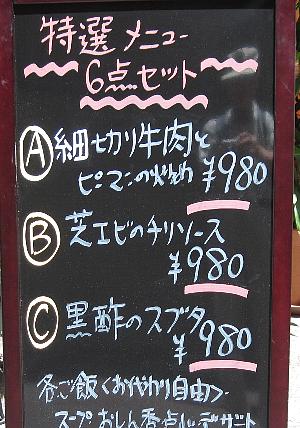 特選メニュー
6点セット
Ⓐ細切り牛肉と
ピーマンの炒め ¥980
Ⓑ芝エビのチリソース
¥980
Ⓒ黒酢のスブタ
¥980
各ご飯くおかわり自由>
スープ おしん香 点心 デザート